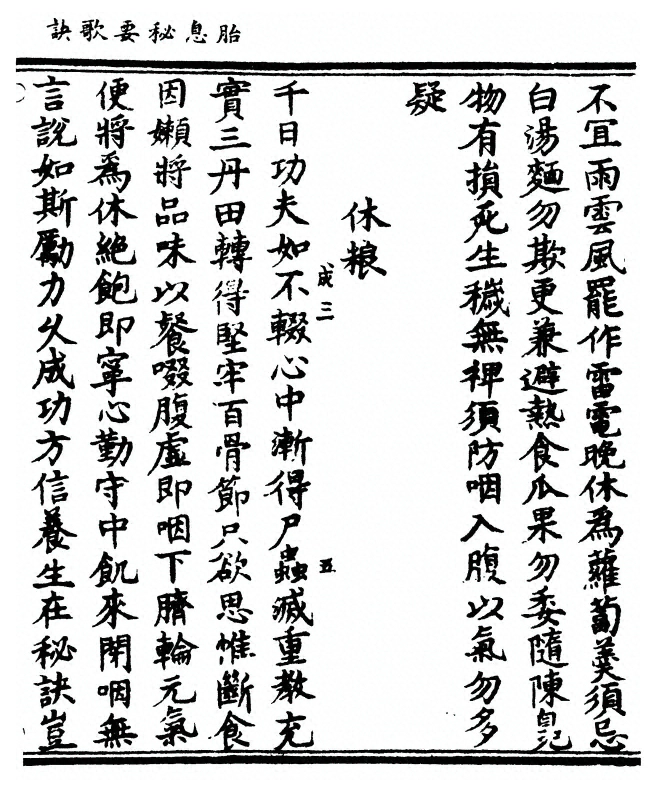 胎息秘要歌訣
不宜雨雲風罷作雷電晚休為蘿蔔羹須忌
白湯麵勿欺更兼避熱食瓜果勿委隨陳
物有損死生穢無裨須防咽入腹以氣勿多
疑
休粮
千日功夫如不輟心中漸得尸蟲滅重教充
成三
五
實三丹田轉得堅牢百骨節只欲思惟斷食
因嬾將品味以餐啜腹虛即咽下臍輪元氣
便將為休絕飽即寧心勤守中飢來閉咽無
言說如斯勵力久成功方信養生在秘訣豈